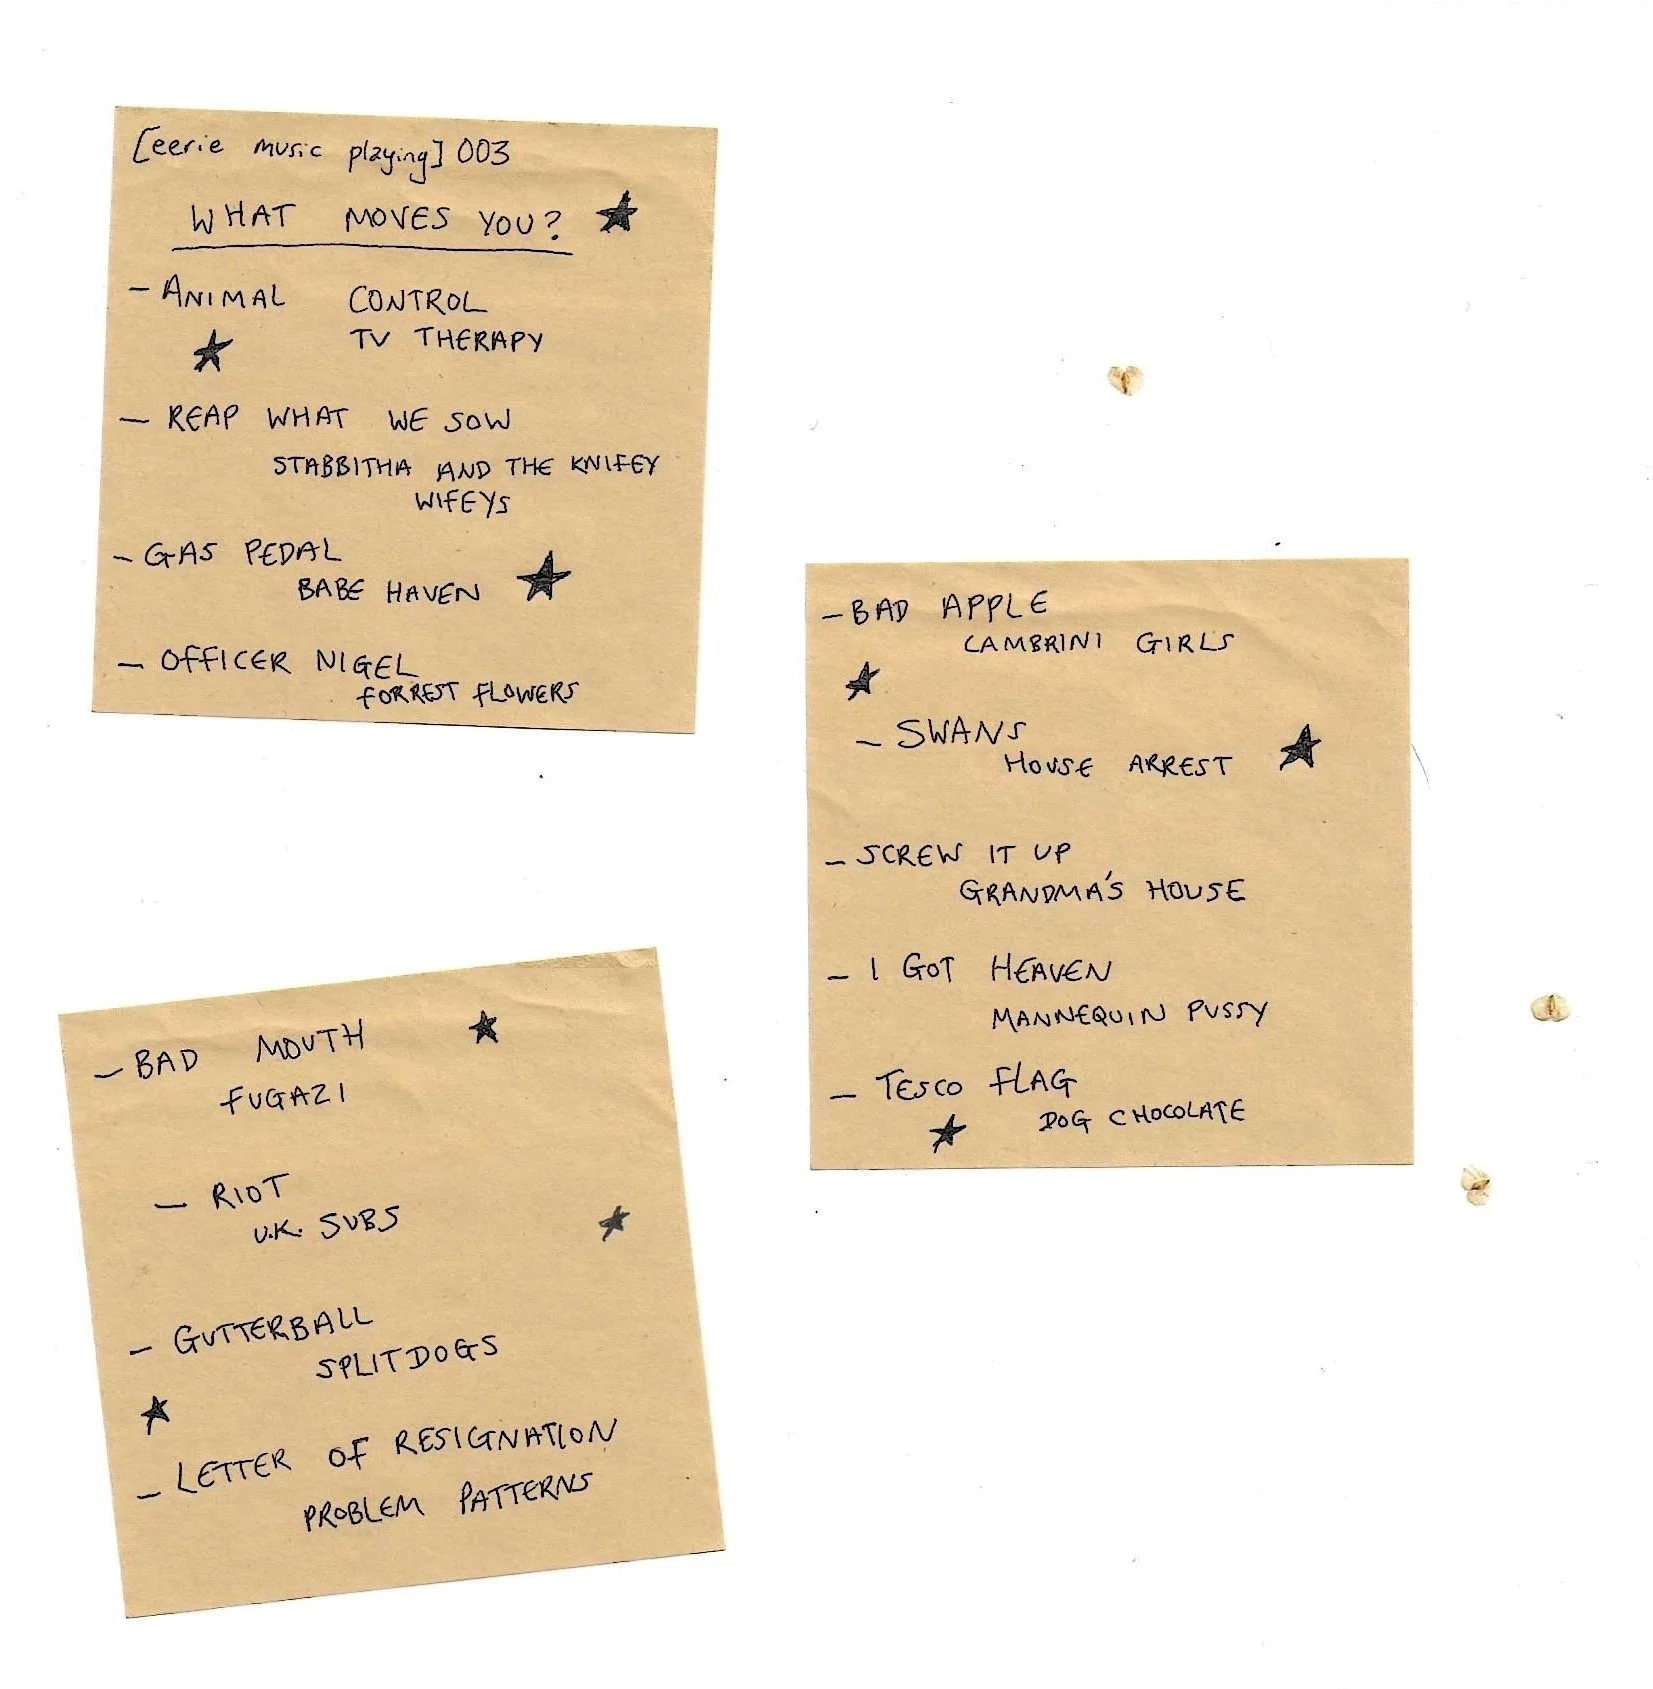 [eerie music playing] 003
WHAT MOVES YOU?
- ANIMAL CONTROL
TV THERAPY
- REAP WHAT WE SOW
STABBITHA AND THE KNIFEY
WIFEYS
- GAS PEDAL
BABE HAVEN
- OFFICER NIGEL
FORREST FLOWERS
- BAD APPLE
LAMBRINI GIRLS
- SWANS
HOUSE ARREST
- SCREW IT UP
GRANDMA'S HOUSE
- I GOT HEAVEN
MANNEQUIN PUSSY
- TESCO FLAG
DOG CHOCOLATE
- BAD MOUTH
FUGAZI
- RIOT
U.K. SUBS
- GUTTERBALL
SPLITDOGS
- LETTER OF RESIGNATION
PROBLEM PATTERNS